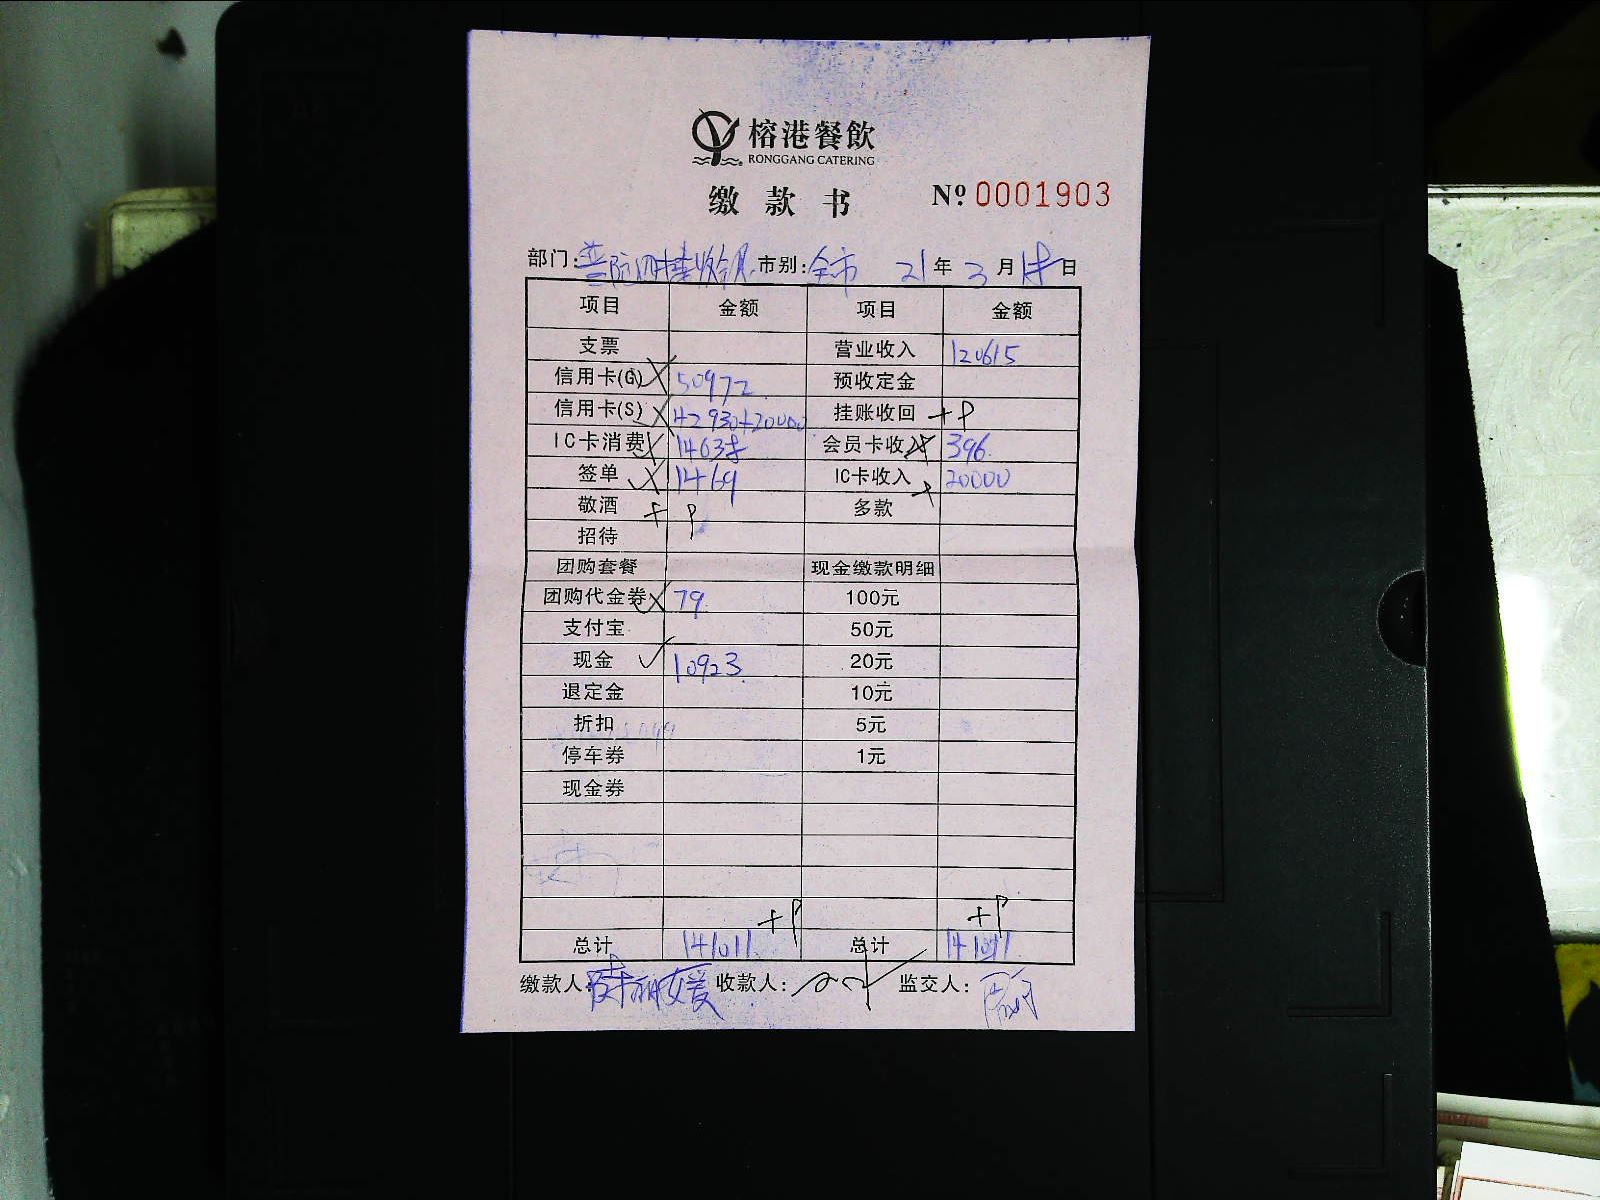 榕港餐飲
RONGGANG CATERING
缴款书 Nº 0001903
部门: 市别: 全市 21年3月18日
项目 金额 项目 金额
支票 营业收入 120615
信用卡(G) 50972 预收定金
信用卡(S) 42930+20000 挂账收回 +P
IC卡消费 14638 会员卡收入 396
签单 1469 IC卡收入 20000
敬酒 + P 多款
招待
团购套餐 现金缴款明细
团购代金券 79 100元
支付宝 50元
现金 10923 20元
退定金 10元
折扣 5元
停车券 1元
现金券
+P +P
总计 141011 总计 141011
缴款人: 收款人: 监交人: